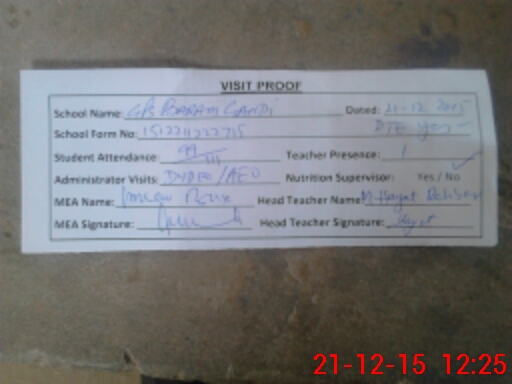 VISIT PROOF
School Name: GPS BARAM GANDI Dated: 21-12 2015
School Form No: DTE yes
Student Attendance: 99/111 Teacher Presence: 1
Administrator Visits: /AEO Nutrition Supervisor: Yes / No
MEA Name: Head Teacher Name: M. Hayat
MEA Signature: Head Teacher Signature: Hayat
21-12-15 12:25